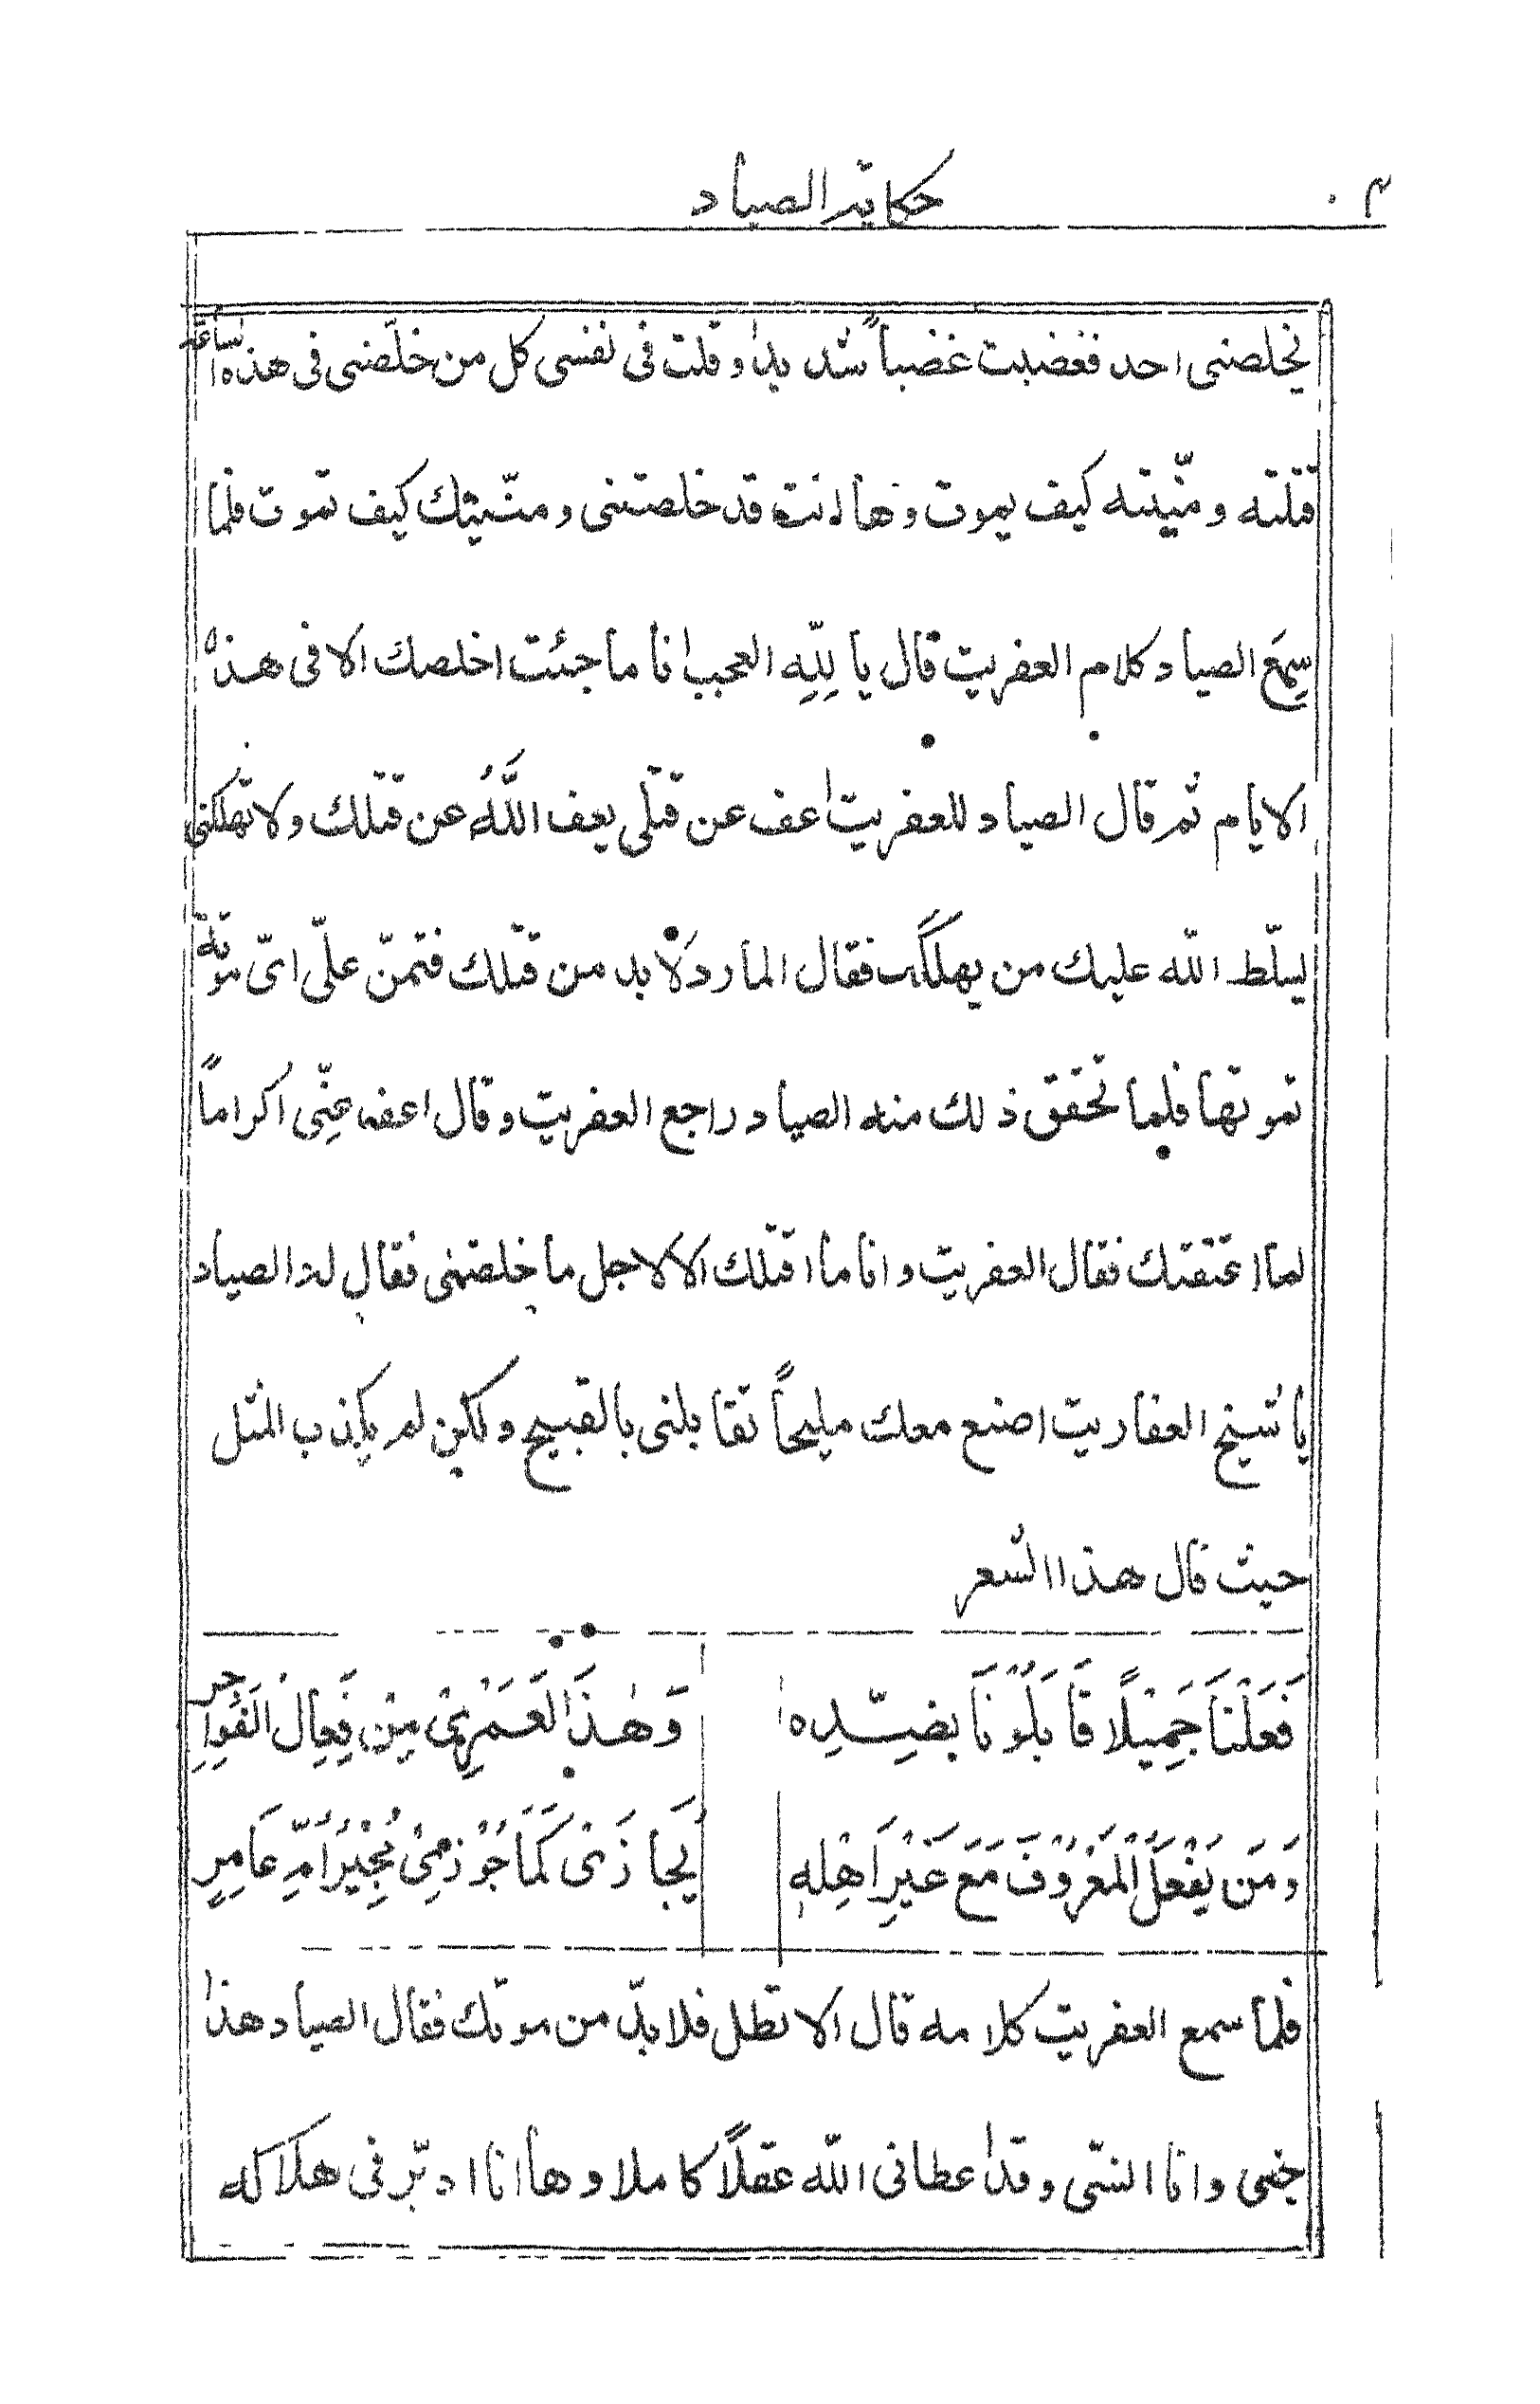 ٣٠ حكاية الصياد
يخلصنى احد فغضبت غضباً شديدا وقلت فى نفسى كل من خلّصنى فى هذه الساعة
قتلته ومنّيته كيف يموت وها انت قد خلصتنى ومنّيتك كيف تموت فلما
سمِعَ الصياد كلام العفريت قال يا لِلّهِ العجب انا ما جئت اخلصك الا فى هذه
الايام ثم قال الصياد للعفريت اعف عن قتلى يعف اللَّهُ عن قتلك ولا تهلكنى
يسلّط اللّه عليك من يهلكك فقال المارد لَا بد من قتلك فتمنّ علّى اىّ موتة
تموتها فلما تحقق ذلك منه الصياد راجع العفريت وقال اعف عنِّى اكراماً
لما اعتقتك فقال العفريت وانا ما اقتلك الا لاجل ما خلصتنى فقال له الصياد
يا شيخ العفاريت اصنع معك مليحاً تقابلنى بالقبيح ولكن لم يكذب المثل
حيث قال هذا الشعر
فَعَلْنَا جَمِيْلًا قَابَلُوْنَا بِضِدِّهِ وَهٰذَا لَعَمْرِىْ مِنْ فِعَالِ الْفَوَاجِرِ
وَمَن يَفْعَلُ الْمَعْرُوْفَ مَعَ غَيْرِ اَهْلِهِ يُجَازَىْ كَمَا جُوْزِىْ مُجِيْرُ اُمِّ عَامِرِ
فلما سمع العفريت كلامه قال لا تطل فلا بدّ من موتك فقال الصياد هذا
جنىّ وانا انسّى وقد اعطانى اللّه عقلًا كاملا وها انا ادبّر فى هلاكه